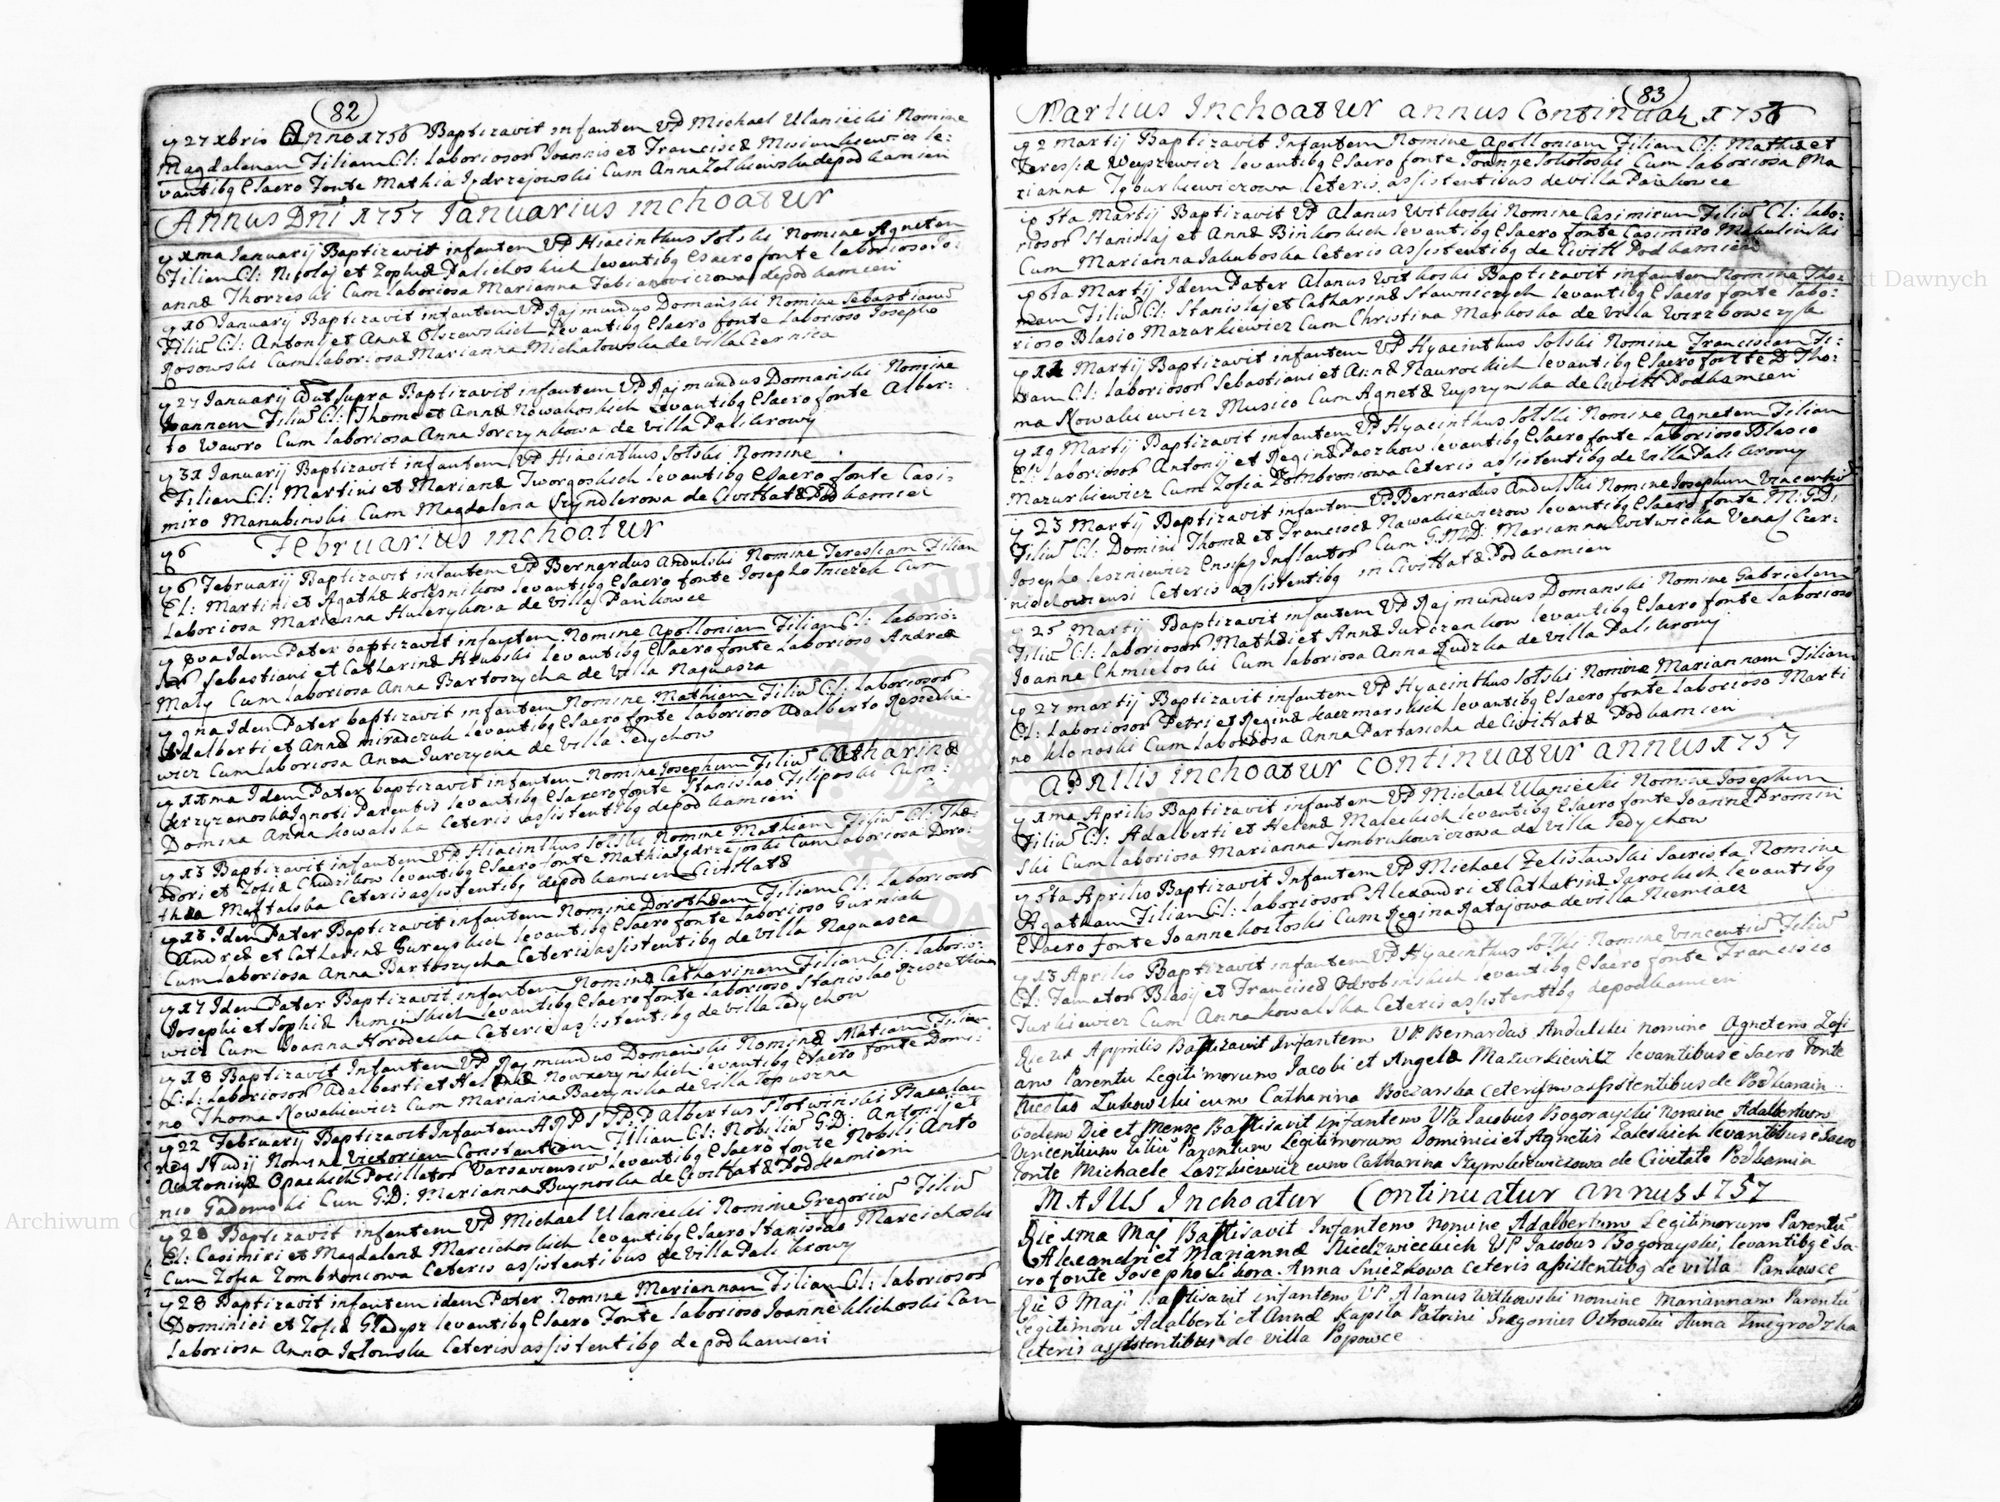 82
y 27 xbris Anno 1756 Baptizavit infantem VP Michael Ulaniecki Nomine
Magdalenam Filiam Cl: laboriosor Joannis et Francisca Misiunkiewicz le:
vantibq e Sacro Fonte Mathia Jędrzejowski Cum Anna Zolkiewska de podkamien
Annus Dni 1757 Januarius inchoatur
y xma Januarij Baptizavit infantem VP Hiacinthus Solski Nomine Agnetem
Filiam Cl: Nicolaj et Zophiæ Palichoskich levantibq e sacro fonte laborioso Jo:
annæ Thorzeski Cum laboriosa Marianna Fabianowiczowa de podkamien
y 16 Januarij Baptizavit infantem VP Rajmundus Domański Nomine Sebastianu
Filiu Cl: Antonij et Annæ Olszewskich levantibq e Sacro fonte laborioso Josepho
Rosowski Cum laboriosa Marianna Michałowska de villa Czernica
y 27 Januarij ut supra Baptizavit infantem VP Rajmundus Domański Nomine
Joannem Filiu Cl: Thomæ et Annæ Nowakoskich levantibq e Sacro fonte Alber:
to Wawro Cum laboriosa Anna Jorczynkowa de villa Palikrowy
y 31 Januarij Baptizavit infantem VP Hiacinthus Solski Nomine
Filiam Cl: Martini et Marianæ Tworgoskich levantibq e Sacro fonte Casi:
miro Manubinski Cum Magdalena Szyndlerowa de Civittatæ Podkamien
y 6 Februarius inchoatur
y 6 Februarij Baptizavit infantem VP Bernardus Andulski Nomine Teressiam Filiam
Cl: Martini et Agathæ Kolesnikow levantibq e Sacro fonte Josepho Cum
laboriosa Marianna Hulerykowa de villa Pańkowce
y 8va Idem Pater baptizavit infantem Nomine Apolloniam Filiam Cl: laborio:
sor Sebastiani et Catharinæ Hrubski levantibq e Sacro fonte laborioso Andrea
Maly Cum laboriosa Anna Bartoszycha de villa Naguasza
y 9na Idem Pater baptizavit infantem Nomine Mathiam Filiu Cl: laboriosor
Adalberti et Annæ miradczuk levantibq e Sacro fonte laborioso Adalberto
wicz Cum laboriosa Anna Jurczycha de villa Jedychow
y 11ma Idem Pater baptizavit infantem Nomine Josephum Filiu Catharinæ
Krzyzanoska Ignoti Parentis levantibq e Sacro fonte Stanislao Filiposki Cum
Domina Anna Kowalska Ceteris assistentibq de podkamien
y 13 Baptizavit infantem VP Hiacinthus Solski Nomine Mathiam Filiu Cl: The:
odori et Zofiæ Chudzikow levantibq e Sacro fonte Mathia Jędrzejoski Cum laboriosa Doro:
thea Ceteris assistentibq de podkamien Civittatæ
y 13 Idem Pater Baptizavit infantem Nomine Dorotheam Filiam Cl: laboriosor
Andreæ et Catharinæ Gurayskich levantibq e Sacro fonte laborioso Gurniak
Cum laboriosa Anna Bartoszycha Ceteris assistentibq de villa Naguasza
y 17 Idem Pater Baptizavit infantem Nomine Catharinam Filiam Cl: laborio:
Josephi et Sophiæ Ruminskich levantibq e Sacro fonte laborioso Stanislao
wicz Cum Joanna Horodecka Ceteris assistentibq de villa Jedychow
y 18 Baptizavit Infantem VP Rajmundus Domański Nominæ Matiam Filiu
Cl: laboriosor Adalberti et Helenæ Nowaczynskich levantibq e Sacro fonte Domi:
no Thoma Nowakiewicz Cum Marianna Baczynska de villa Topuszna
y 22 Februarij Baptizavit Infantem Albertus Slotwinski
Studij Nomine Victoriam Constantiam Filiam Cl: Nobiliu GD: Antonij et
Antoninæ Opackich Pocillator Varsaviensiu levantibq e Sacro fonte Nobili Anto
nio Gadomski Cum GD: Marianna Buynoska de Civittatæ Podkamieni
y 28 Baptizavit infantem VP Michael Ulaniecki Nomine Gregoriu Filiu
Cl: Casimiri et Magdalenæ Marcichoskich levantibq e Sacro Stanislao Marcichoski
Cum Zofia Zombroniowa Ceteris assistentibus de villa Palikrowy
y 28 Baptizavit infantem idem Pater Nomine Mariannam Filiam Cl: laboriosor
Dominici et Zofiæ Gladysz levantibq e Sacro Fonte laborioso Joanne Klichoski Cum
laboriosa Anna Jolowska Ceteris assistentibq de podkamieni
83
Martius Inchoatur annus Continuat 1757
y 2 Martij Baptizavit Infantem Nomine Apolloniam Filiam Cl: Mathiæ et
Teressiæ Weyszewicz levantibq e Sacro fonte Joanne Sokołoski Cum laboriosa Ma
rianna Tyburkiewiczowa Ceteris assistentibus de villa Pańkowce
y 5ta Martij Baptizavit VP Alanus Witkoski Nomine Casimirum Filiu Cl: labo:
riosor Stanislaj et Annæ Binkoskich levantibq e Sacro fonte Casimiro Makulinski
Cum Marianna Jakuboska Ceteris assistentibq de Civitt Podkamien
y 6ta Martij Idem Pater Alanus Witkoski Baptizavit infantem Nomine Tho:
mam Filiu Cl: Stanislaj et Catharinæ Stawniczych levantibq e Sacro fonte labo:
rioso Blasio Mazurkiewicz Cum Christina Markoska de villa Wirzbowczyk
y Martij Baptizavit infantem VP Hyacinthus Solski Nomine Francisca Fi:
liam Cl: laboriosor Sebastiani et Annæ Nawrockich levantibq e Sacro fonte D Tho:
ma Nowakiewicz Musico Cum Agnetæ Wyszynska de Civitt Podkamieni
y 19 Martij Baptizavit infantem VP Hyacinthus Solski Nomine Agnetem Filiam
Cl: laboriosor Antonij et Reginæ Paszkow levantibq e Sacro fonte laborioso Blasio
Mazurkiewicz Cum Zofia Zombroniowa Ceteris assistentibq de villa Palikrowy
y 23 Martij Baptizavit infantem VP Bernardus Andulski Nomine Josephum Vincentiu
Filiu Cl: Domini Thomæ et Franciscæ Nowakiewiczow levantibq e Sacro fonte M:GD:
Josepho leszniewicz Cum G:MD: Marianna Witwicka Czer:
Ceteris assistentibq in Civittatæ Podkamien
y 25 Martij Baptizavit infantem VP Rajmundus Domanski Nomine Gabrielem
Filiu Cl: laboriosor Mathæi et Annæ Jurczenkow levantibq e Sacro fonte laborioso
Joanne Chmieloski Cum laboriosa Anna Rudzka de villa Palikrowy
y 27 martij Baptizavit infantem VP Hyacinthus Solski Nominæ Mariannam Filiam
Cl: laboriosor Petri et Reginæ Kaczmarskich levantibq e Sacro fonte laborioso Marti
no klonoski Cum laboriosa Anna Partasicha de Civittatæ Podkamieni
Aprilis inchoatur Continuatur annus 1757
y xma Aprilis Baptizavit infantem VP Michael Ulaniecki Nomine Josephum
Filiu Cl: Adalberti et Helenæ Maleckich levantibq e Sacro fonte Joanne Promin
ski Cum laboriosa Marianna Jembrukowiczowa de villa Jedychow
y 5ta Aprilis Baptizavit Infantem VP Michael Zelislawski Sacrista Nomine
Agatham Filiam Cl: laboriosor Alexandri et Catharinæ Jarockich levantibq
e Sacro fonte Joanne kozłoski Cum Regina Ratajowa de villa Niemiacz
y 13 Aprilis Baptizavit infantem VP Hyacinthus Solski Nomine Vincentiu Filiu
Cl: Famator Blasij et Franciscæ Odrobinskich levantibq e Sacro fonte Francisco
Turkiewicz Cum Anna kowalska Ceteris assistentibq de podkamien
Die Apprilis Baptizavit Infantem VP Bernardus Andulski nomine Agnetem Zofi
am Parentu Legitimorum Jacobi et Angelæ Mazurkiewicz levantibus e Sacro Fonte
Nicolao Lukowski cum Catharina Boczarska Ceteris assistentibus de Podkamin
Eodem Die et Mense Baptisavit infantem VP Jacobus Bogorayski Nomine Adalbertum
Vincentium Filiu Parentum Legitimorum Dominici et Agnetis Zaleskich levantibus e Sacro
Fonte Michaele Laszkiewicz cum Catharina Szymkiewiczowa de Civitate Podkamin
MAIUS Inchoatur Continuatur annus 1757
Die xma Maj Baptisavit Infantem nomine Adalbertum Legitimorum Parentu
Alexandri et Mariannæ Niedzwieckich VP Jacobus Bogorayski, levantibq e Sa
cro fonte Josepho Sikora Anna Sniezkowa Ceteris assistentibq de villa Pankowce
Die 3 Maji Baptisavit infantem VP Alanus Witkowski nomine Mariannam Parentu
Legitimoru Adalberti et Annæ Kapila Patrini Gregorius Ostrowski Anna Zmigrodzka
Ceteris assistentibus de villa Popowce